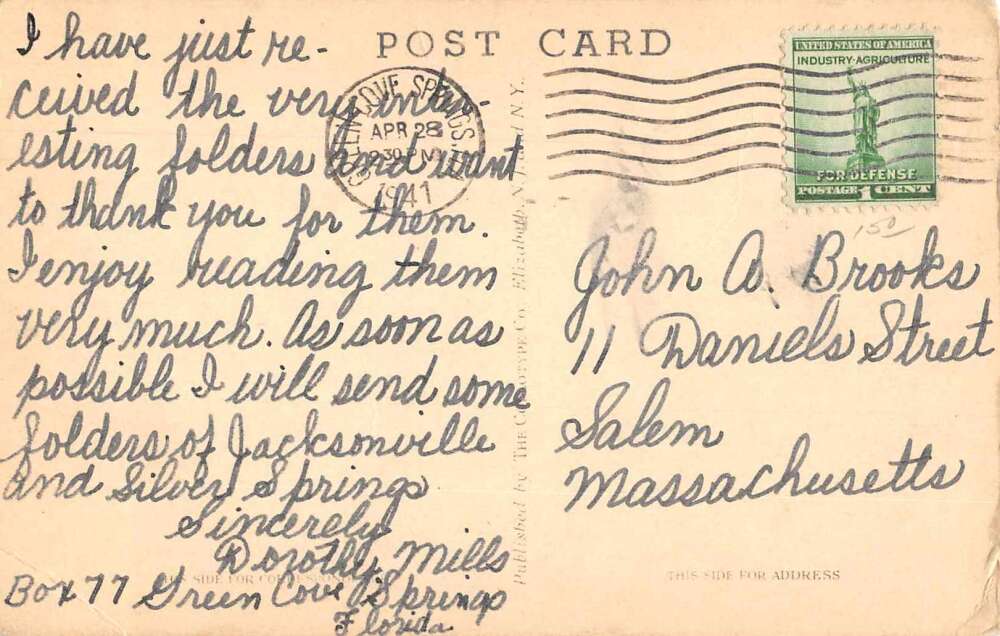 POST CARD
I have just re-
ceived the very inter-
esting folders and want
to thank you for them.
I enjoy reading them
very much. As soon as
possible I will send some
folders of Jacksonville
and Silver Springs
Sincerely
Dorothy Mills
Box 77 Green Cove Springs
Florida
THIS SIDE FOR CORRESPONDENCE
GREEN COVE SPRINGS
APR 28
1941
Published by THE COLLOTYPE Co., Elizabeth, N.J. and N.Y.
UNITED STATES OF AMERICA
INDUSTRY·AGRICULTURE
FOR DEFENSE
POSTAGE 1 CENT
150
John A. Brooks
11 Daniels Street
Salem
Massachusetts
THIS SIDE FOR ADDRESS